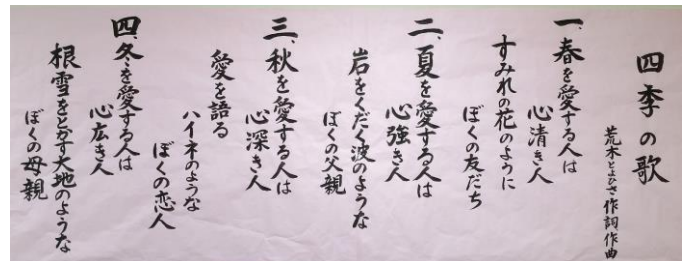 四季の歌
荒木とよひさ作詞作曲
一、春を愛する人は
心清き人
すみれの花のように
ぼくの友だち
二、夏を愛する人は
心強き人
岩をくだく波のような
ぼくの父親
三、秋を愛する人は
心深き人
愛を語る
ハイネのような
ぼくの恋人
四、冬を愛する人は
心広き人
根雪をとかす大地のような
ぼくの母親